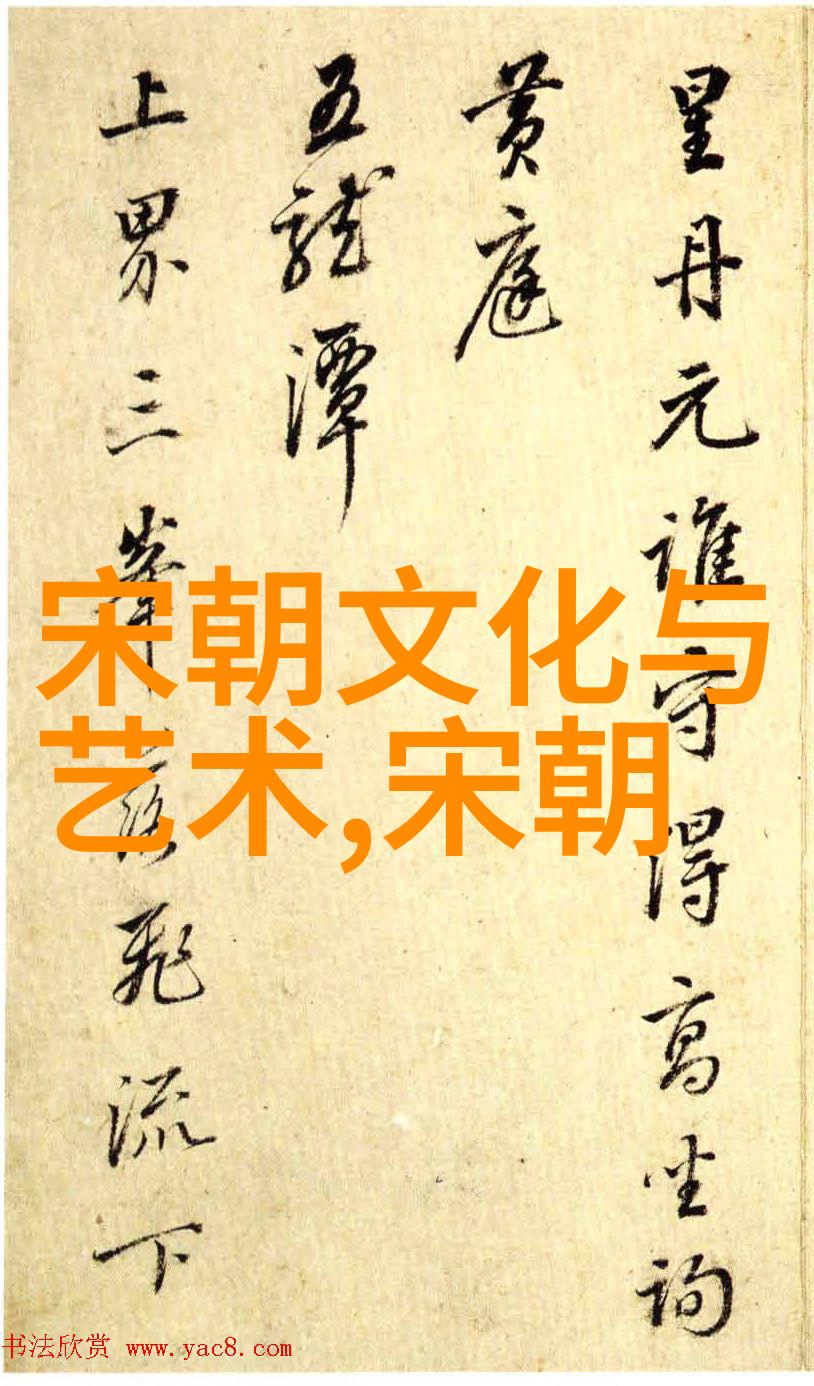 星丹元誰守得高坐詢
黄庭
五龍潭
上界三峯飛流下
宋朝文化与
艺术,宋朝
书法欣赏 www.yac8.com